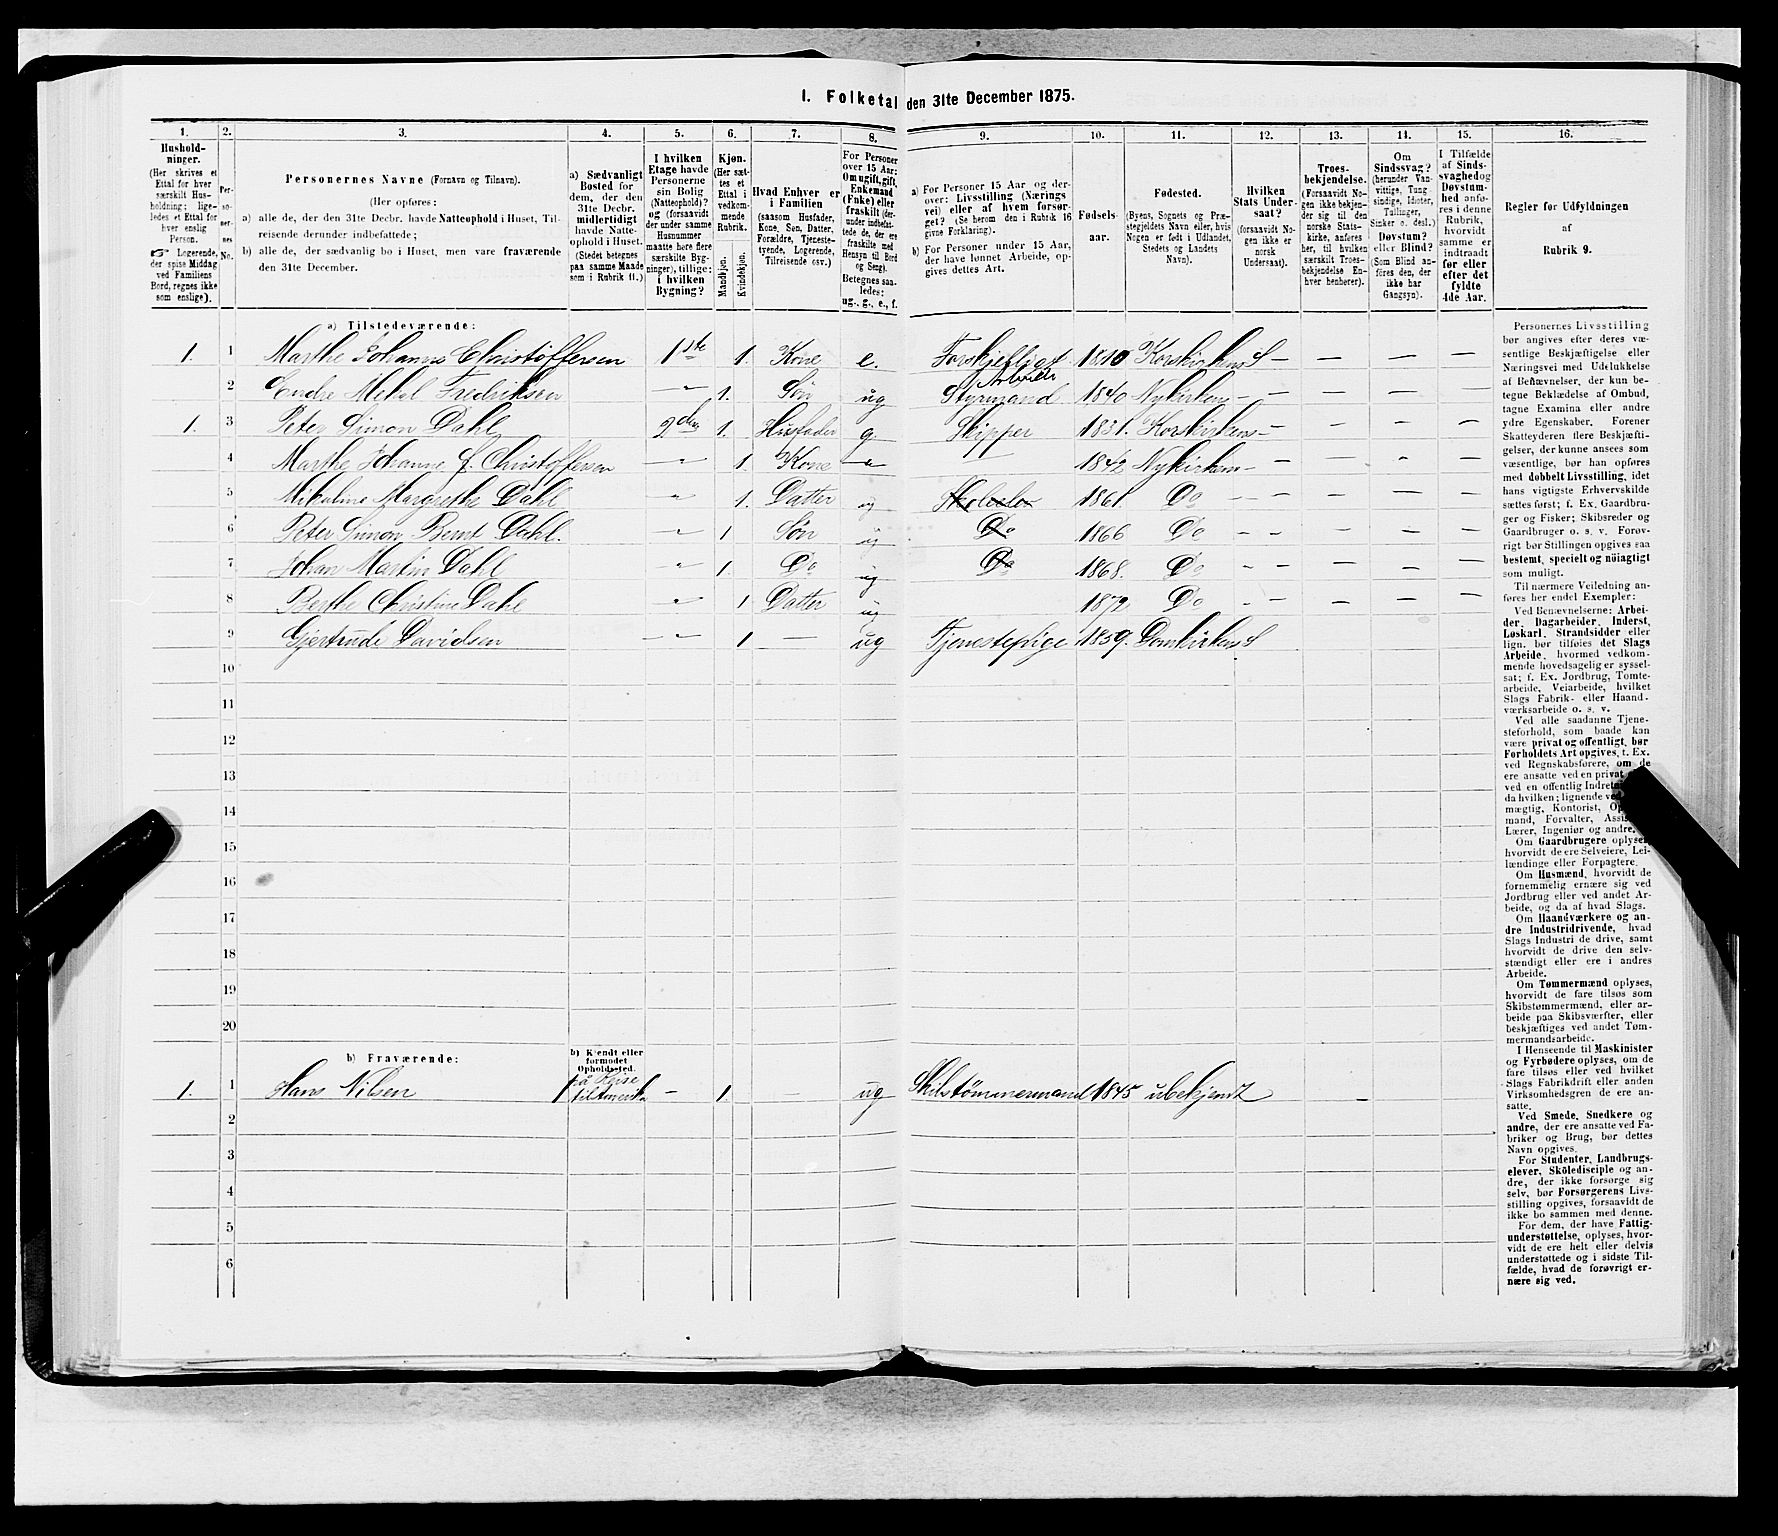 I. Folketal den 31te December 1875.
1. 2. 3. 4. 5. 6. 7. 8. 9. 10. 11. 12. 13. 14. 15. 16.
Hushold-
ninger.
(Her skrives et
Ettal for hver
særskilt Hus-
holdning; lige-
ledes et Ettal for
hver enslig
Person.
☞ Logerende,
der spise Middag
ved Familiens
Bord, regnes ikke
som enslige).
Per-
so-
ner-
nes
No.
Personernes Navne (Fornavn og Tilnavn).
(Her opføres:
a) alle de, der den 31te Decbr. havde Natteophold i Huset, Til-
reisende derunder indbefattede;
b) alle de, der sædvanlig bo i Huset, men vare fraværende
den 31te December.
a) Sædvanligt
Bosted for
dem, der den
31te Decbr.
midlertidigt
havde Natte-
ophold i Huset.
(Stedet betegnes
paa samme Maade
som i Rubrik 11.)
I hvilken
Etage havde
Personerne
sin Bolig
(Natteophold)?
og (forsaavidt
der under samme
Husnummer
maatte høre flere
særskilte Byg-
ninger), tillige:
i hvilken
Bygning?
Kjøn.
(Her sæt-
tes et
Ettal i
vedkom-
mende
Rubrik.
Mandkjøn.
Kvindekjøn.
Hvad Enhver er
i Familien
(saasom Husfader,
Kone, Søn, Datter,
Forældre, Tjeneste-
tyende, Logerende,
Tilreisende osv.)
For Personer
over 15 Aar:
Om ugift, gift,
Enkemand
(Enke) eller
fraskilt (der-
under indbefat-
tede de, der ere
fraskilte med
Hensyn til Bord
og Seng).
Betegnes saa-
ledes:
ug., g., e., f.
a) For Personer 15 Aar og der-
over: Livsstilling (Nærings
vei) eller af hvem forsør-
get? (Se herom den i Rubrik 16
givne Forklaring).
b) For Personer under 15 Aar,
der have lønnet Arbeide, op-
gives dettes Art.
Fødsels-
aar.
Fødested.
(Byens, Sognets og Præ-
stegjeldets Navn eller, hvis
Nogen er født i Udlandet,
Stedets og Landets
Navn).
Hvilken
Stats Under-
saat?
(forsaavidt No-
gen ikke er
norsk
Undersaat).
Troes-
bekjendelse.
(Forsaavidt No-
gen ikke bekjen-
der sig til den
norske Stats-
kirke, anføres
her, til hvilken
særskilt Troes-
bekjendelse En-
hver henhører).
Om
Sindssvag?
(herunder Van-
vittige, Tung
sindige, Idioter,
Tullinger,
Sinker o. desl.)
Døvstum?
eller Blind?
(Som Blind an-
føres den, der
ikke har
Gangsyn).
I Tilfælde
af Sinds-
svaghed og
Døvstum-
hed anfø-
res i denne
Rubrik,
hvorvidt
samme er
indtraadt
før eller
efter det
fyldte
4de Aar.
Regler før Udfyldningen
af
Rubrik 9.
a) Tilstedeværende:
1. 1 Marthe Johanns Christoffersen 1ste 1. Kone e. Forskjelligt Arbeide 1810 Korskirkens S — — — —
2 Endre Mekal Fredriksen — " — 1. Søn ug Styrmand 1840 Nykirkens — — — — —
1. 3 Peter Simon Dahl 2den 1. Husfader g. Skipper 1831. Korskirkens — — — — —
4 Marthe Johanne f. Christoffersen — " — 1. Kone — " — — 1842 Nykirkens — — — — —
5 Mikaline Margrethe Dahl " 1. Datter ug Skoleelev 1861. Do — — — — —
6 Peter Simon Bernt Dahl. " 1 Søn ug Do 1866 Do — — — — —
7 Johan Martin Dahl " 1. Do ug Do 1868. Do — — — — —
8 Berthe Christine Dahl " 1 Datter ug 1872 Do — — — — —
9 Gjertrude Davidsen — " — 1 — ug Tjenestepige 1859. Domkirkens S
10
11
12
13
14
15
16
17
18
19
20
b) Fraværende:
b) Kjendt eller
formodet
Opholdssted.
1. 1 Hans Nilsen på Reise til Amerika — 1. — ug Skibstømmermand 1845 ubekjendt —
2
3
4
5
6
Personernes Livsstilling
bør angives efter deres væ-
sentlige Beskjæftigelse eller
Næringsvei med Udelukkelse
af Benævnelser, der kun be-
tegne Beklædelse af Ombud,
tagne Examina eller andre
ydre Egenskaber. Forener
Skatteyderen flere Beskjæfti-
gelser, der kunne ansees som
væsentlige, bør han opføres
med dobbelt Livsstilling, idet
hans vigtigste Erhvervskilde
sættes først; f. Ex. Gaardbru-
ger og Fisker; Skibsreder og
Gaardbruger o. s. v. Forøv-
rigt bør Stillingen opgives saa
bestemt, specielt og nøiagtigt
som muligt.
Til nærmere Veiledning an-
føres her endel Exempler:
Ved Benævnelserne: Arbei-
der, Dagarbeider, Inderst,
Løskarl, Strandsidder eller
lign. bør tilføies det Slags
Arbeide, hvormed vedkom-
mende hovedsagelig er syssel-
sat; f. Ex. Jordbrug, Tomte-
arbeide, Veiarbeide, hvilket
Slags Fabrik- eller Haand-
værksarbeide o. s. v.
Ved alle saadanne Tjene-
steforhold, som baade kan
være privat og offentligt, bør
Forholdets Art opgives, t. Ex.
ved Regnskabsførere, om de
ere ansatte ved en privat
ved en offentlig
da hvilken; lignende
mægtig, Kontorist,
mand, Forvalter,
Lærer, Ingeniør og andre.
Om Gaardbrugere oplyses,
hvorvidt de ere Selveiere, Lei-
lændinge eller Forpagtere.
Om Husmænd, hvorvidt de
fornemmelig ernære sig ved
Jordbrug eller ved andet Ar-
beide, og da af hvad Slags.
Om Haandværkere og an-
dre Industridrivende, hvad
Slags Industri de drive, samt
hvorvidt de drive den selv-
stændigt eller ere i andres
Arbeide.
Om Tømmermænd oplyses,
hvorvidt de fare tilsøs som
Skibstømmermænd, eller ar-
beide paa Skibsværfter, eller
beskjæftiges ved andet Tøm-
mermandsarbeide.
I Henseende til Maskinister
og Fyrbødere oplyses, om de
fare tilsøs eller ved hvilket
Slags Fabrikdrift eller anden
Virksomhedsgren de ere an-
satte.
Ved Smede, Snedkere og
andre, der ere ansatte ved Fa-
briker og Brug, bør dettes
Navn opgives.
For Studenter, Landbrugs-
elever, Skoledisciple og an-
dre, der ikke forsørge sig
selv, bør Forsørgerens Livs-
stilling opgives, forsaavidt de
ikke bo sammen med denne.
For dem, der have Fattig-
understøttelse, oplyses, hvor-
vidt de ere helt eller delvis
understøttede og i sidste Til-
fælde, hvad de forøvrigt er-
nære sig ved.